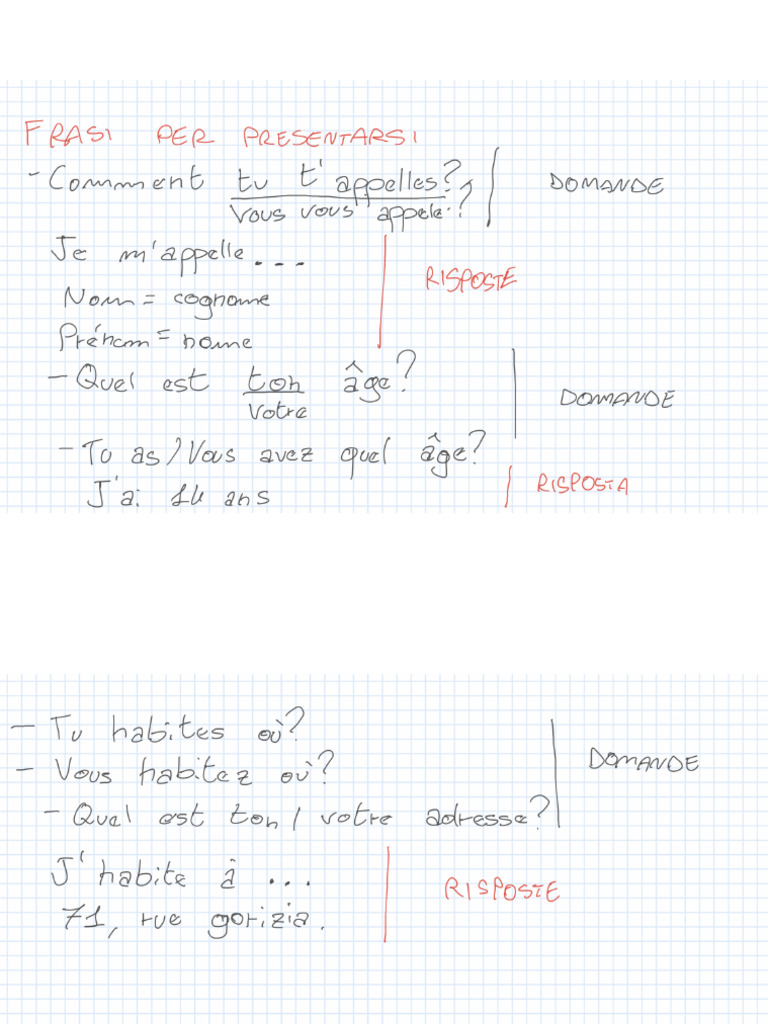 FRASI PER PRESENTARSI
- Comment tu t'appelles? DOMANDE
vous vous appele.?
Je m'appelle...
RISPOSTE
Nom = cognome
Prénom = nome
- Quel est ton âge?
votre DOMANDE
- Tu as / Vous avez quel âge?
J'ai 14 ans RISPOSTA
- Tu habites où?
- Vous habitez où? DOMANDE
- Quel est ton / votre adresse?
J'habite à ... RISPOSTE
71, rue gorizia.